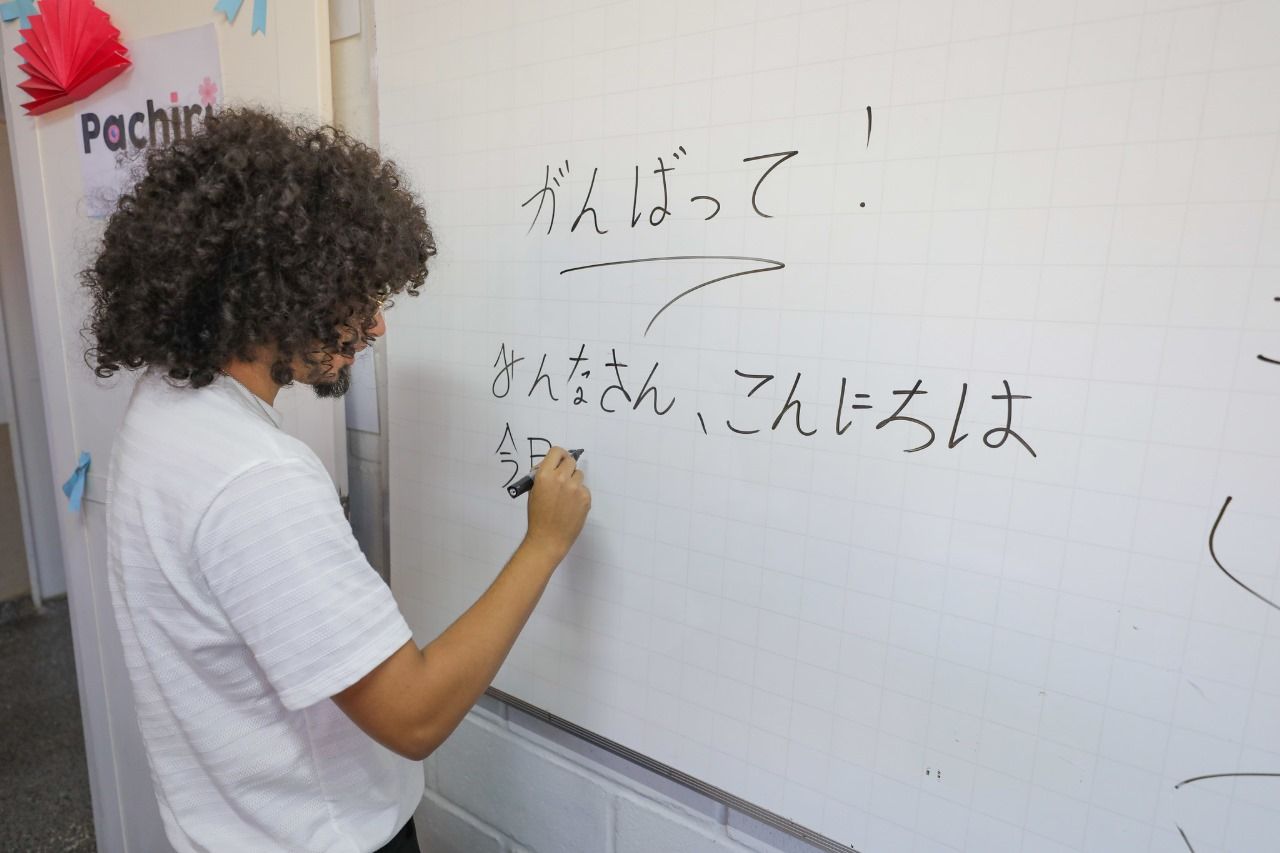 Pachiri
がんばって!
みんなさん、こんにちは
今日